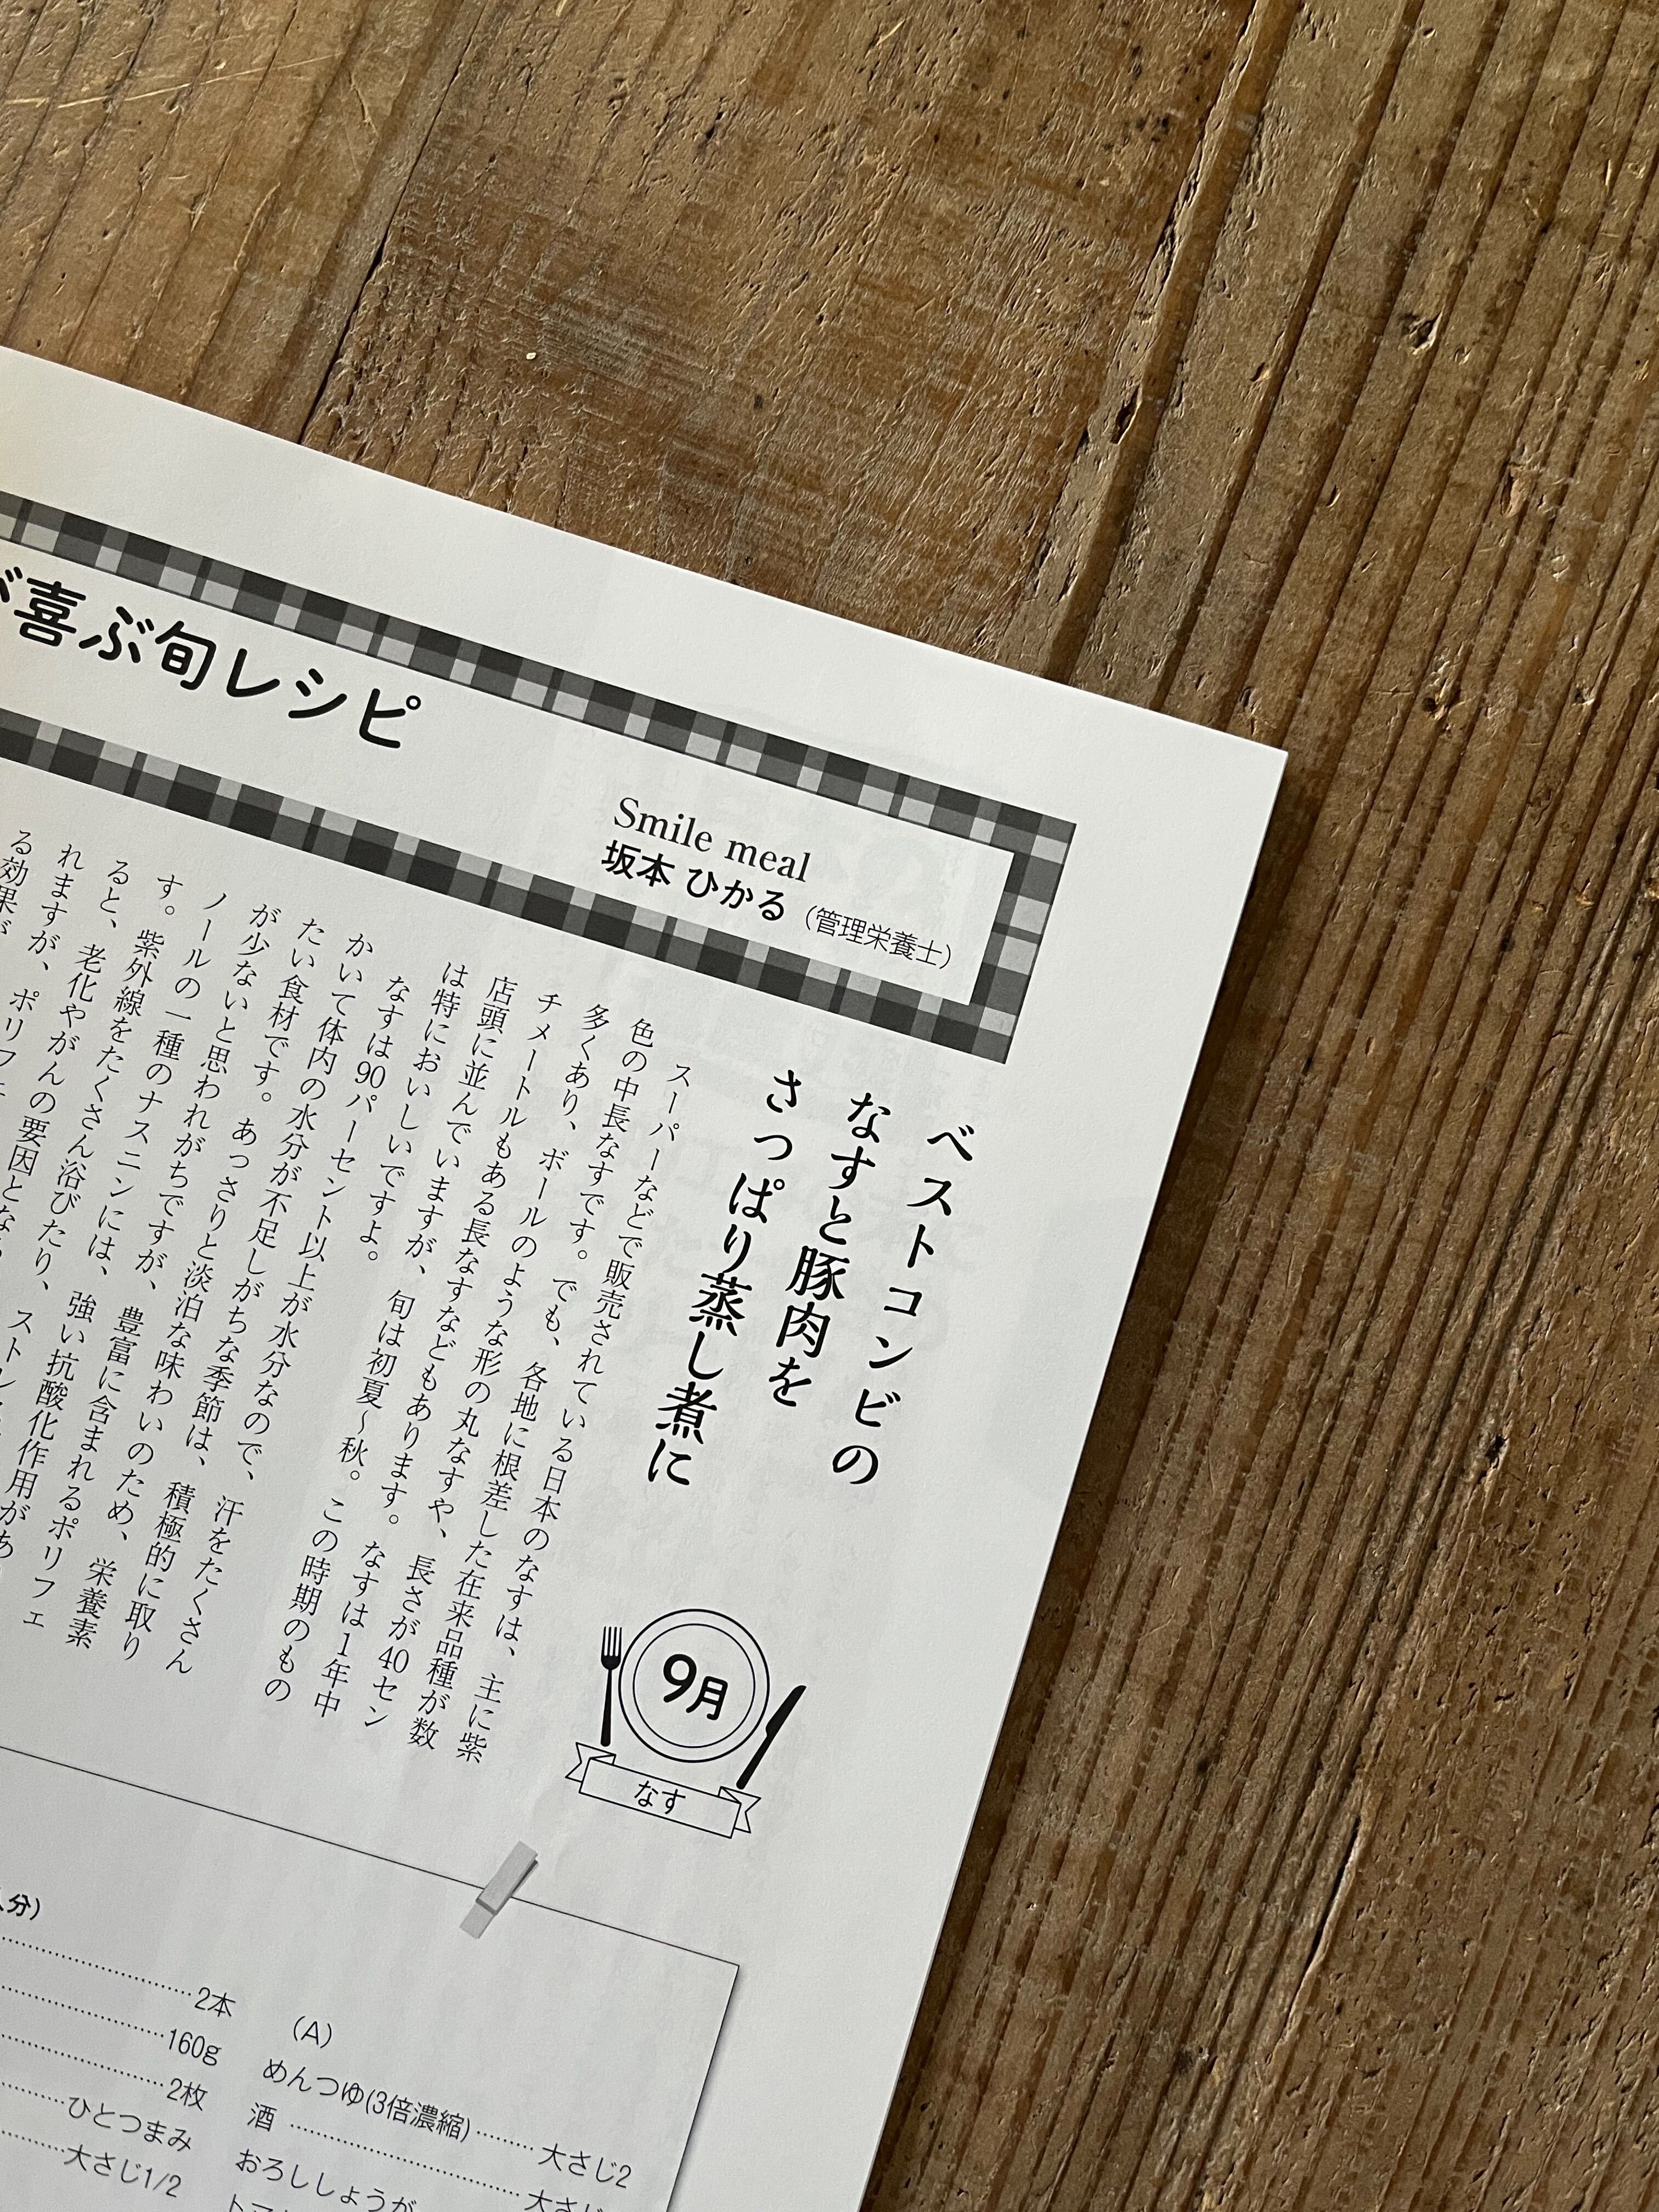 喜ぶ旬レシピ
Smile meal
坂本 ひかる（管理栄養士）
ベストコンビの
なすと豚肉を
さっぱり蒸し煮に
9月
なす
スーパーなどで販売されている日本のなすは、主に紫
色の中長なすです。でも、各地に根差した在来品種が数
多くあり、ボールのような形の丸なすや、長さが40セン
チメートルもある長なすなどもあります。なすは1年中
店頭に並んでいますが、旬は初夏〜秋。この時期のもの
は特においしいですよ。
なすは90パーセント以上が水分なので、汗をたくさん
かいて体内の水分が不足しがちな季節は、積極的に取り
たい食材です。あっさりと淡泊な味わいのため、栄養素
が少ないと思われがちですが、豊富に含まれるポリフェ
ノールの一種のナスニンには、強い抗酸化作用があ
す。紫外線をたくさん浴びたり、スト
ると、老化やがんの要因とな
れますが、ポリフ
る効果が
分）
2本
160g
2枚
ひとつまみ
大さじ1/2
（A）
めんつゆ(3倍濃縮) 大さじ2
酒 大さじ
おろししょうが